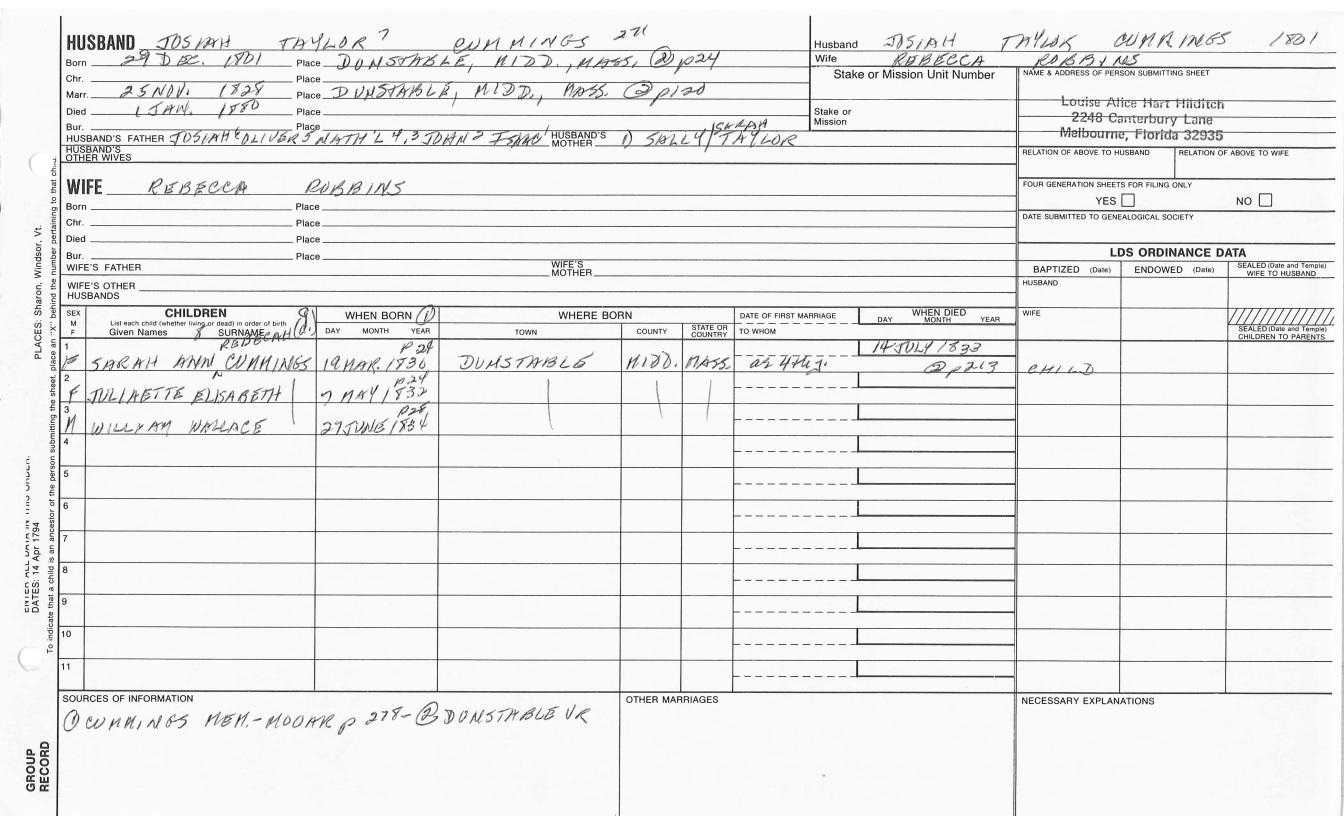 HUSBAND JOSIAH TAYLOR 7 CUMMINGS 271
Born 29 DEC. 1801 Place DUNSTABLE, MIDD., MASS. ② p24
Chr. Place
Marr. 25 NOV. 1828 Place DUNSTABLE, MIDD., MASS. ② p120
Died 1 JAN. 1880 Place
Bur. Place
HUSBAND'S FATHER JOSIAH 6 OLIVER 5 NATH'L 4,3 JOHN 2 ISAAC 1 HUSBAND'S MOTHER 1) SALLY/SARAH TAYLOR
HUSBAND'S OTHER WIVES
WIFE REBECCA ROBBINS
Born Place
Chr. Place
Died Place
Bur. Place
WIFE'S FATHER WIFE'S MOTHER
WIFE'S OTHER HUSBANDS
Husband JOSIAH TAYLOR CUMMINGS 1801
Wife REBECCA ROBBINS
Stake or Mission Unit Number
Stake or Mission
NAME & ADDRESS OF PERSON SUBMITTING SHEET
Louise Alice Hart Hilditch
2248 Canterbury Lane
Melbourne, Florida 32935
RELATION OF ABOVE TO HUSBAND RELATION OF ABOVE TO WIFE
FOUR GENERATION SHEETS FOR FILING ONLY
YES NO
DATE SUBMITTED TO GENEALOGICAL SOCIETY
LDS ORDINANCE DATA
BAPTIZED (Date) ENDOWED (Date) SEALED (Date and Temple) WIFE TO HUSBAND
HUSBAND
WIFE
SEALED (Date and Temple) CHILDREN TO PARENTS
SEX M F
CHILDREN
List each child (whether living or dead) in order of birth
Given Names 8 SURNAME
WHEN BORN ①
DAY MONTH YEAR
WHERE BORN
TOWN COUNTY STATE OR COUNTRY
DATE OF FIRST MARRIAGE
TO WHOM
WHEN DIED
DAY MONTH YEAR
1 REBECCAH p24 14 JULY 1833
F SARAH ANN CUMMINGS 19 MAR. 1830 DUNSTABLE MIDD. MASS. ② p213 CHILD
2 p24
F JULIAETTE ELISABETH 7 MAY 1832
3 p25
M WILLIAM WALLACE 27 JUNE 1834
4
5
6
7
8
9
10
11
SOURCES OF INFORMATION
① CUMMINGS MEM.-MOOAR p 278- ② DUNSTABLE VR
OTHER MARRIAGES
NECESSARY EXPLANATIONS
PLACES: Sharon, Windsor, Vt.
DATES: 14 Apr 1794
ENTER ALL DATA IN THIS ORDER:
To indicate that a child is an ancestor of the person submitting the sheet, place an "X" behind the number pertaining to that
GROUP RECORD